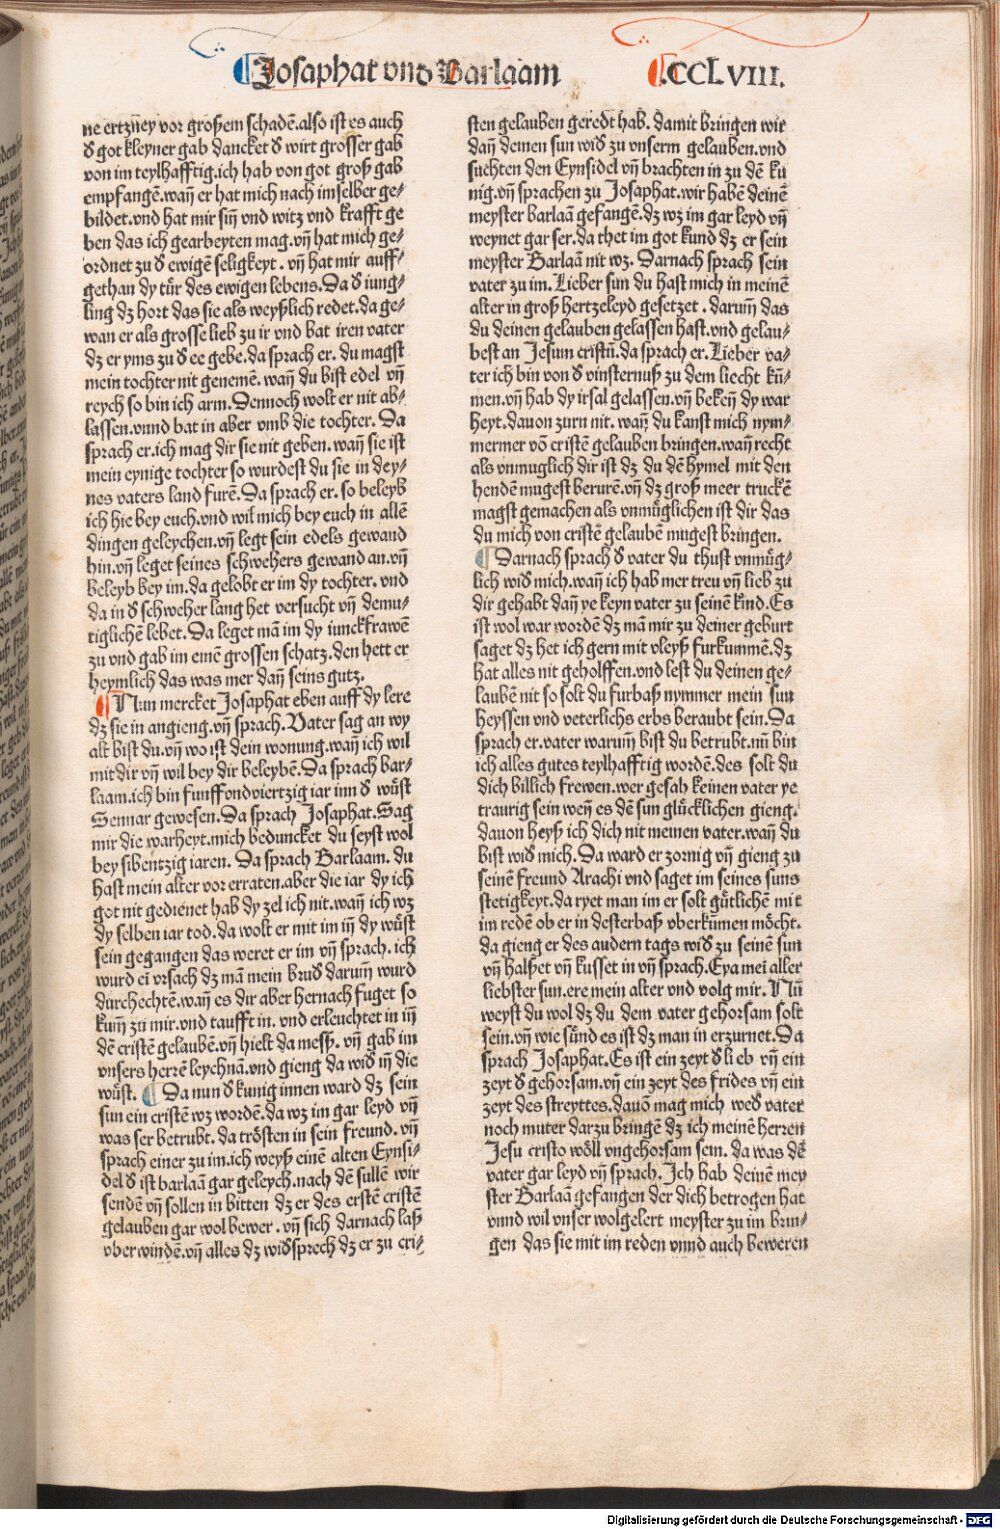 Josaphat vnd Barlaam
.CCLVIII.
ne ertzney vor großem schadē.also ist es auch
đ got kleyner gab dancket đ wirt grosser gab
von im teylhafftig.ich hab von got groß gab
empfangē.wañ er hat mich nach im selber ge-
bildet.vnd hat mir siñ vnd witz vnd krafft ge
ben das ich gearbeyten mag.vñ hat mich ge-
ordnet zu đ ewigē seligkeyt. vñ hat mir auff-
gethan dy tür des ewigen lebens.Da đ iung-
ling dz hort das sie als weyßlich redet.da ge-
wan er als grosse lieb zu ir vnd bat iren vater
dz er yms zu đ ee gebe.da sprach er. du magst
mein tochter nit genemē. wañ du bist edel vñ
reych so bin ich arm. Dennoch wolt er nit ab-
lassen.vnnd bat in aber vmb die tochter. Da
sprach er.ich mag dir sie nit geben. wañ sie ist
mein eynige tochter so wurdest du sie in dey-
nes vaters land furē. Da sprach er. so beleyb
ich hie bey euch.vnd wil mich bey euch in allē
dingen geleychen.vñ legt sein edels gewand
hin.vñ leget seines schwehers gewand an.vñ
beleyb bey im.da gelobt er im dy tochter. vnd
da in đ schweher lang het versucht vñ demu-
tiglichē lebet. Da leget mā im dy iunckfrawē
zu vnd gab im einē grossen schatz.den hett er
heymlich das was mer dañ seins gutz.
Nun mercket Josaphat eben auff dy lere
dz sie in angieng.vñ sprach. Vater sag an wy
alt bist du.vñ wo ist dein wonung.wañ ich wil
mit dir vñ wil bey dir beleybē. Da sprach bar-
laam.ich bin funffondviertzig iar inn đ wůst
Sennar gewesen. Da sprach Josaphat. Sag
mir die warheyt.mich beduncket du seyst wol
bey sibentzig iaren. Da sprach Barlaam. du
hast mein alter vor erraten.aber die iar dy ich
got nit gedienet hab dy zel ich nit.wañ ich wz
dy selben iar tod.da wolt er mit im iñ dy wůst
sein gegangen das weret er im vñ sprach. ich
wurd ei vrsach dz mā mein bruđ darum̄ wurd
durchechtē.wañ es dir aber hernach fuget so
kum̄ zu mir.vnd taufft in. vnd erleuchtet in iñ
dē cristē gelaubē.vñ hielt da meß. vñ gab im
vnsers herrē leychnā.vnd gieng da wiđ iñ die
wůst. Da nun đ kunig innen ward dz sein
sun ein cristē wz wordē.da wz im gar leyd vñ
was ser betrubt. da trösten in sein freund. vñ
sprach einer zu im.ich weyß einē alten Eynsi-
del đ ist barlaā gar geleych.nach dē sullē wir
sendē vñ sollen in bitten dz er des erstē cristē
gelauben gar wol bewer . vñ sich darnach laß
vberwindē.vñ alles dz widsprech dz er zu cri-
sten gelauben geredt hab. damit bringen wir
dañ deinen sun wiđ zu vnserm gelauben.vnd
suchten den Eynsidel vñ brachten in zu dē ku
nig.vñ sprachen zu Josaphat.wir habē deinē
meyster barlaā gefangē.dz wz im gar leyd vñ
weynet gar ser.da thet im got kund dz er sein
meyster Barlaā nit wz. Darnach sprach sein
vater zu im. Lieber sun du hast mich in meinē
alter in groß hertzeleyd gesetzet . darum̄ das
du deinen gelauben gelassen hast.vnd gelau-
best an Jesum cristū.da sprach er. Lieber va-
ter ich bin von đ vinsternuß zu dem liecht kū-
men.vñ hab dy irsal gelassen.vñ bekeñ dy war
heyt.dauon zurn nit. wañ du kanst mich nym-
mermer vō cristē gelauben bringen.wañ recht
als vnmuglich dir ist dz du dē hymel mit den
hendē mugest berurē.vñ dz groß meer truckē
magst gemachen als vnmüglichen ist dir das
du mich von cristē gelaubē mugest bringen.
Darnach sprach đ vater du thust vnmüg-
lich wiđ mich.wañ ich hab mer treu vñ lieb zu
dir gehabt dañ ye keyn vater zu seinē kind. Es
ist wol war wordē dz mā mir zu deiner geburt
saget dz het ich gern mit vleyß furkummē.dz
hat alles nit geholffen.vnd lest du deinen ge-
laubē nit so solt du furbaß nymmer mein sun
heyssen vnd veterlichs erbs beraubt sein. Da
sprach er.vater warum̄ bist du betrubt.nū bin
ich alles gutes teylhafftig wordē.des solt du
dich billich frewen.wer gesah keinen vater ye
traurig sein weñ es dē sun glücklichen gieng.
dauon heyß ich dich nit meinen vater.wañ du
bist wiđ mich. Da ward er zornig vñ gieng zu
seinē freund Arachi vnd saget im seines suns
stetigkeyt.da ryet man im er solt gütlichē mit
im redē ob er in desterbaß vberkūmen möcht.
da gieng er des andern tags wiđ zu seinē sun
vñ halßet vñ kusset in vñ sprach.Eya mei aller
liebster sun.ere mein alter vnd volg mir. Nū
weyst du wol dz du dem vater gehorsam solt
sein.vñ wie sünd es ist dz man in erzurnet. Da
sprach Josaphat. Es ist ein zeyt đ lieb vñ ein
zeyt đ gehorsam.vñ ein zeyt des frides vñ ein
zeyt des streyttes.dauō mag mich weđ vater
noch muter darzu bringē dz ich meinē herren
Jesu cristo wöll vngehorsam sein. da was dē
vater gar leyd vñ sprach. Ich hab deinē mey
ster Barlaā gefangen der dich betrogen hat
vnnd wil vnser wolgelert meyster zu im brin-
gen das sie mit im reden vnnd auch beweren
Digitalisierung gefördert durch die Deutsche Forschungsgemeinschaft - DFG